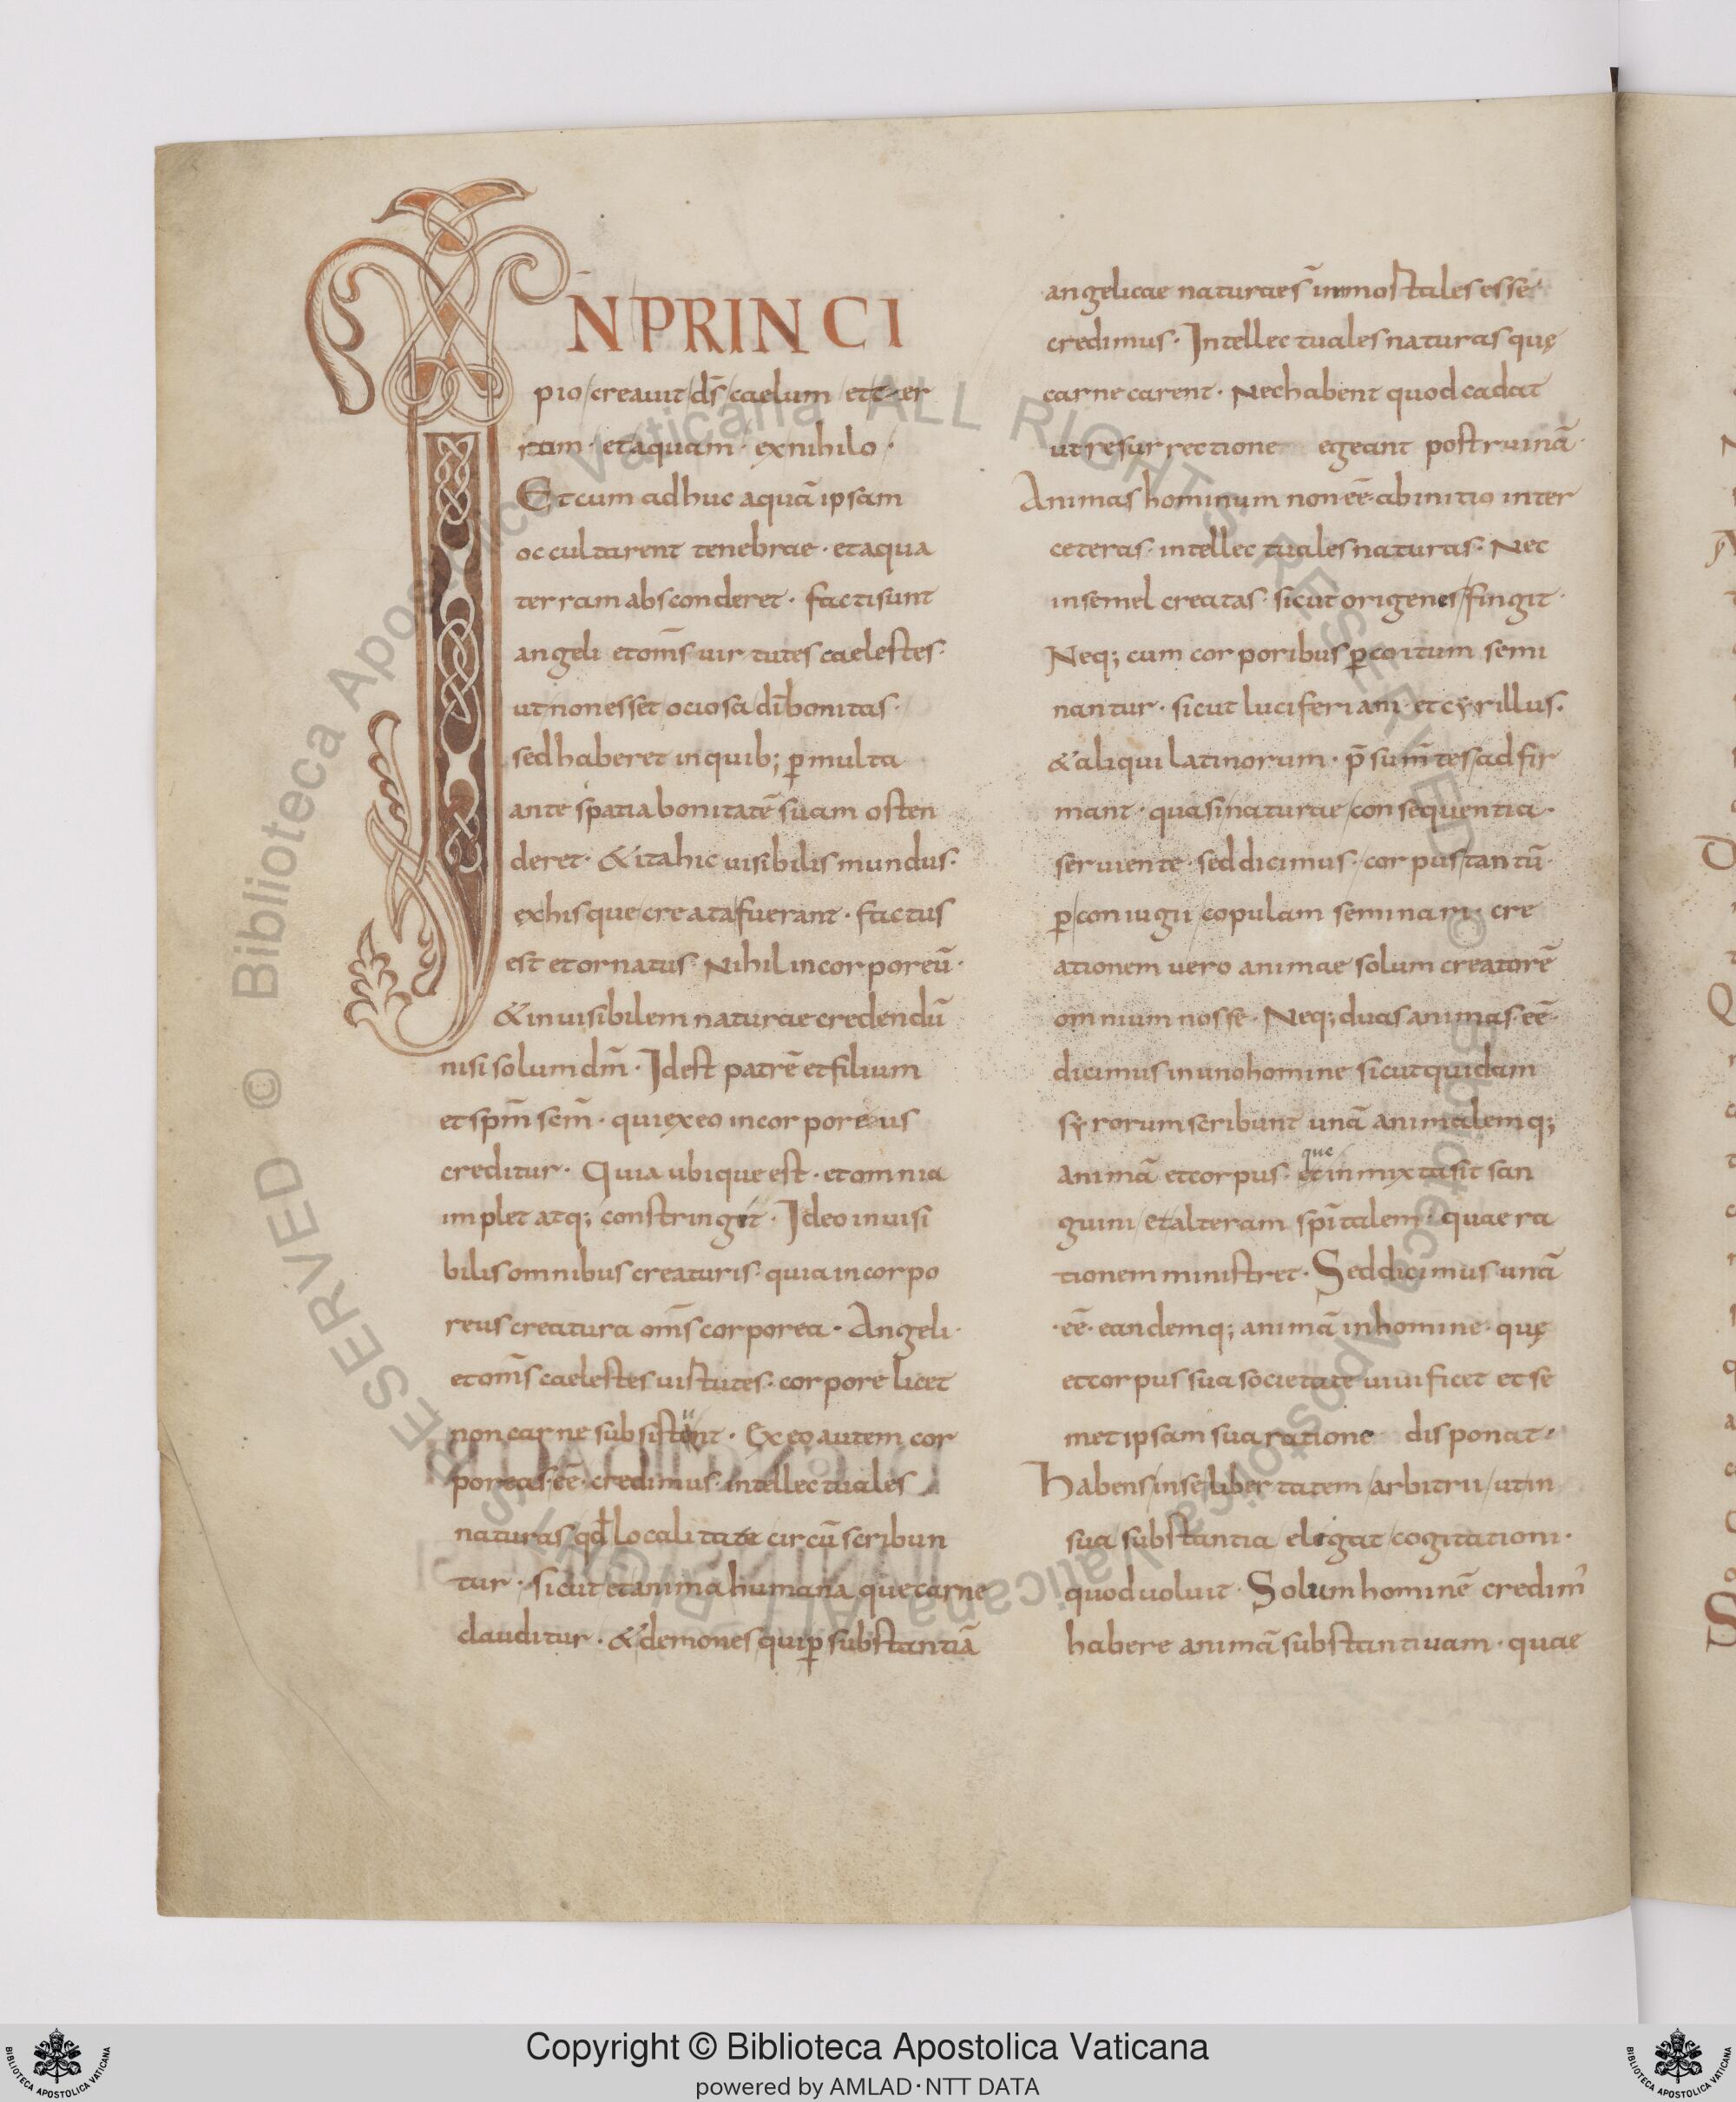 IN PRINCI
pio creauit d̄s caelum et ter
ram · et aquam · ex nihilo ·
Et cum adhuc aquā ipsam
occultarent tenebrae · et aqua
terram absconderet · facti sunt
angeli et om̄s uirtutes caelestes ·
ut non esset ociosa dī bonitas ·
sed haberet in quib; ꝑ multa
ante spatia bonitatē suam osten
deret · & ita hic uisibilis mundus ·
ex his que creata fuerant · factus
est et ornatus · Nihil incorporeū ·
& inuisibilem naturae credendū
nisi solum dm̄ · Id est patrē et filium
et spm̄ scm̄ · qui ex eo incorporeus
creditur · Quia ubique est · et omnia
implet atq; constringit · Ideo inuisi
bilis omnibus creaturis · quia incorpo
reus creatura om̄s corporea · Angeli ·
et om̄s caelestes uirtutes · corpore licet
non carne subsistunt · Ex eo autem cor
poreas · eē · credimus · intellectuales
naturas qd̄ localitate circū scribun
tur · sicut et anima humana que carne
clauditur · & demones qui ꝑ substantiā
angelicae naturae s̄ inmortales esse ·
credimus · Intellectuales naturas quę
carne carent · Nec habent quod cadat
ut resurrectione egeant post ruinā ·
Animas hominum non eē · ab initio inter
ceteras · intellectuales naturas · Nec
insemel creatas · sicut origenes fingit ·
Neq; cum corporibus ꝑ coitum semi
nantur · sicut luciferiani · et cyrillus ·
& aliqui latinorum · p̄sum̄tes adfir
mant · quasi naturae consequentia ·
seruiente · sed dicimus · corpus tantū ·
ꝑ coniugii copulam seminari · cre
ationem uero animae solum creatorē
omnium nosse · Neq; duas animas · eē ·
dicimus in uno homine sicut quidam
syrorum scribunt unā animalem q;
que
animā et corpus · et inmixta sit san
guini et alteram spītalem · quae ra
tionem ministret · Sed dicimus unā
· eē · eandemq; animā in homine · quę
et corpus sua societate uiuificet et se
met ipsam sua ratione disponat ·
Habens in se libertatem arbitrii ut in
sua substantia eligat cogitationi ·
quod uoluit · Solum hominē credim᾽
habere animā substantiuam · quae
Biblioteca Apostolica Vaticana ALL RIGHTS RESERVED ©
Copyright © Biblioteca Apostolica Vaticana
powered by AMLAD·NTT DATA
BIBLIOTECA APOSTOLICA VATICANA
BIBLIOTECA APOSTOLICA VATICANA